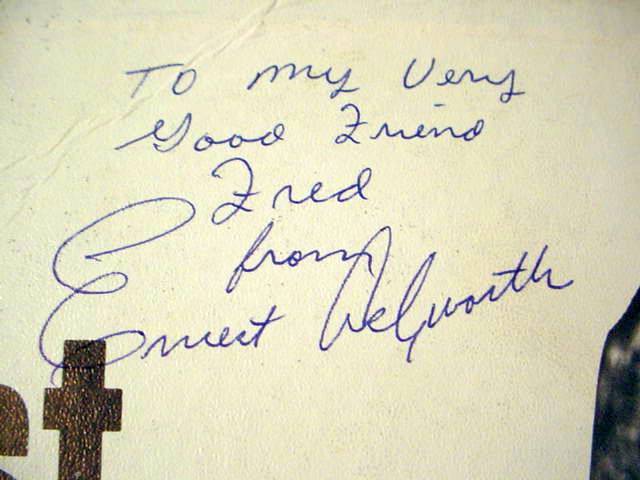 To my Very
Good Friend
Fred
from
Ernest
st